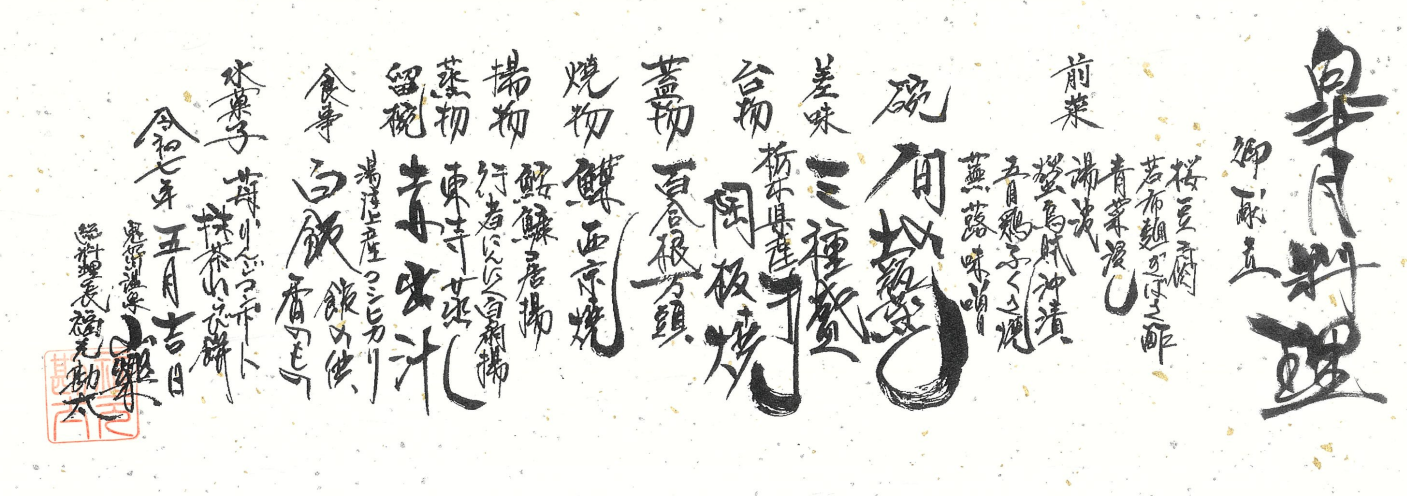 皐月料理
御献立
前菜
桜豆腐
若布麺かけ酢
青菜浸し
湯波
蛍烏賊沖漬
五目鶏ふくさ焼
蕪 蕗味噌
碗
旬
差味
三種盛
台物
栃木県産牛
陶板焼
蓋物
百合根万頭
焼物
鰆西京焼
揚物
鮟鱇唐揚
行者にんにく白扇揚
蒸物
東寺蒸し
留椀
赤出汁
食事
湯津上産コシヒカリ
白飯 飯の供
香のもの
水菓子
苺 りんごコンポート
抹茶わらび餅
令和七年
五月吉日
鬼怒川温泉
山楽
総料理長 勘太